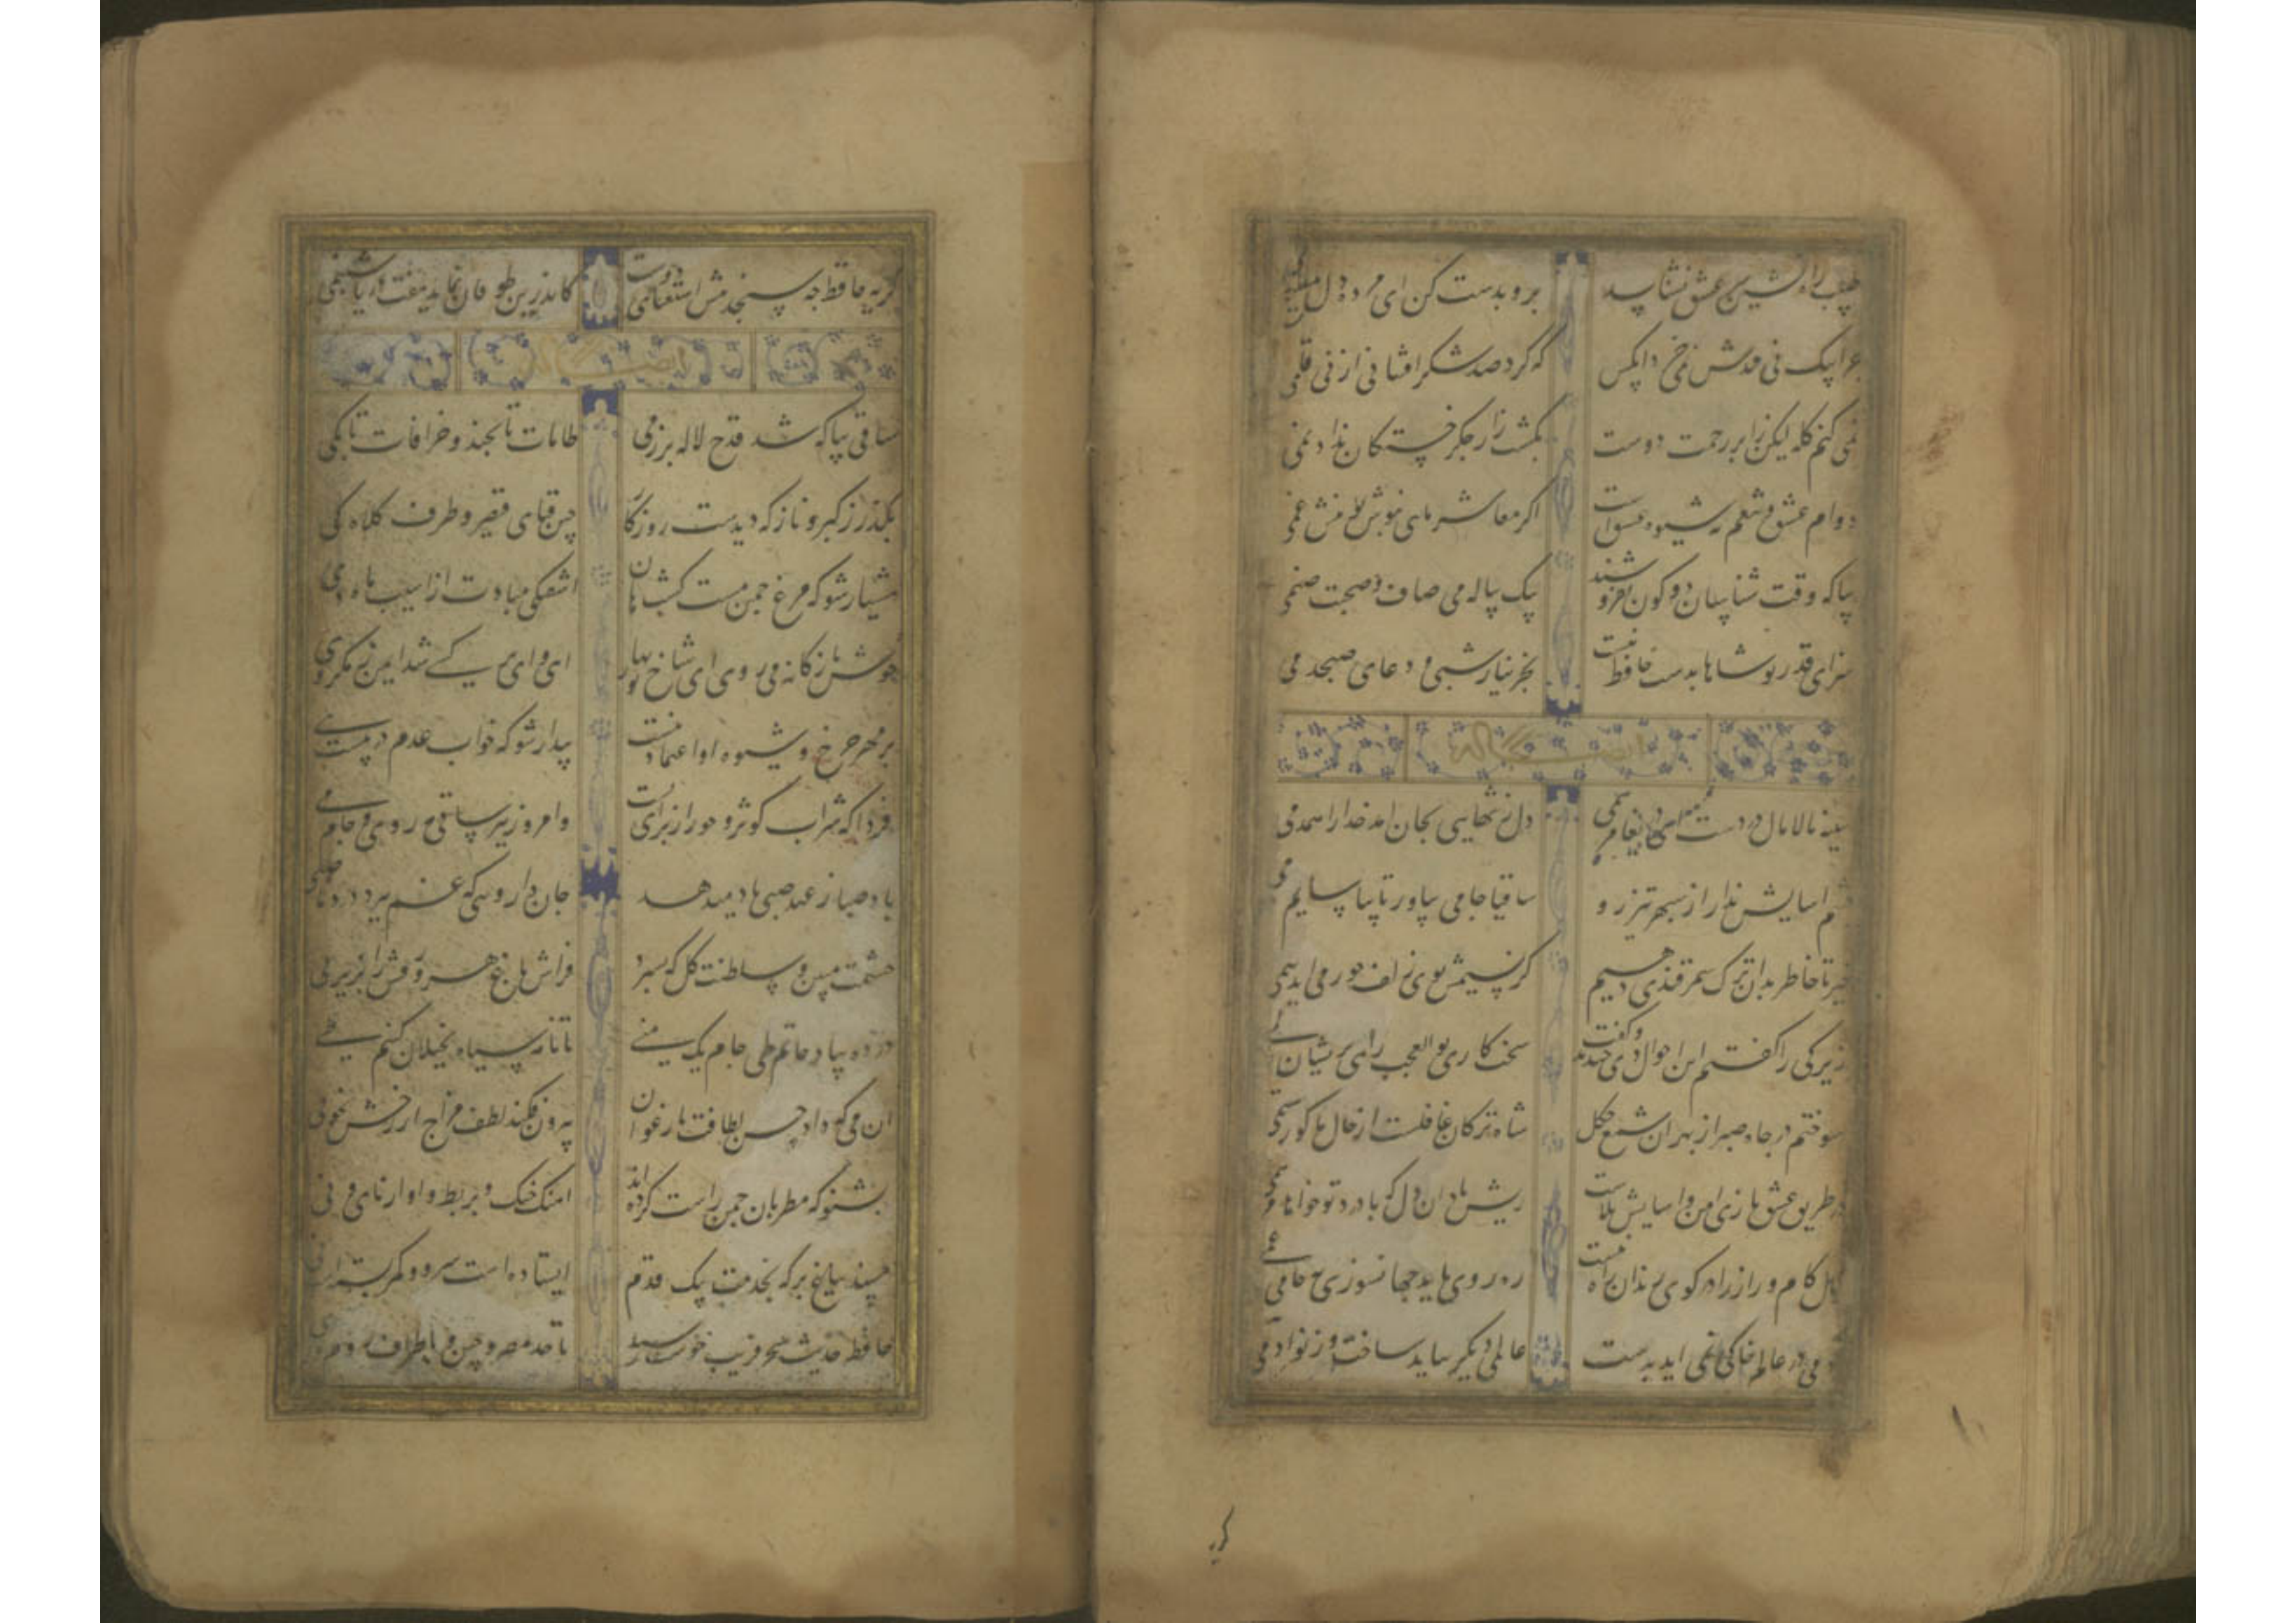 طبیب راه نشین عشق نشناسد برو بدست کن ای مرده دل
که کرد صد شکر افشانی از نی قلمی
نمی کنم کله لیکن ز ابر رحمت دوست بکشت زار جکر خستکان نداد نمی
دوام عیش و تنعم نه شیوه عشق است اکر معاشر مایی بنوش غمی
بیا که وقت شناسان دو کون بفروشند بیک پیاله می صاف و صحبت صنمی
سزای قدر تو شاها بدست حافظ نیست بجز نیاز شبی و دعای صبحدمی
سینه مالامال دردست ای مرهمی دل ز تنهایی بجان امد خدا را همدمی
چشم اسایش ندارد از سپهر تیز رو ساقیا جامی بیاور تا بیاسایم دمی
خیز تا خاطر بدان ترک سمرقندی دهیم کز نسیمش بوی زلف حور می اید همی
زیرکی را کفتم این احوال خندید و کفت سخت کاری بو العجب پریشان
سوختم در چاه صبر از بهر ان شمع چکل شاه ترکان غافلست از حال ما کو رستمی
در طریق عشق بازی امن و اسایش بلاست ریش باد ان دل که با درد تو خواهد مرهمی
اهل کام و راز را در کوی رندان راه نیست ره روی باید جهانسوزی خامی بیغمی
ادمی در عالم خاکی نمی اید بدست عالمی دیکر بباید ساخت وز نو ادمی
کریه
کریه حافظ چه سنجد پیش استغنای دوست کاندرین طوفان نماید هفت دریا شبنمی
ساقی بیا که شد قدح لاله پر ز می طامات تا بچند و خرافات تا بکی
بکذر ز کبر و ناز که دیدست روزکار چین قبای قیصر و طرف کلاه کی
هشیار شو که مرغ چمن مست کشت هان
خوش نازکانه می روی ای شاخ نوبهار
بر مهر چرخ و شیوه او اعتماد نیست بیدار شو که خواب عدم در پیست
فردا که شراب کوثر و حور از برای ماست وامروز نیز ساقی مه روی و جام می
باد صبا ز عهد صبی یاد میدهد جان دارویی که غم ببرد در ده ای صبی
حشمت مبین و سلطنت کل که بسپرد فراش باغ هر ورقش را بزیر پی
در ده بیاد حاتم طی جام یک منی تا نامه سیاه بخیلان کنیم طی
ان می که داد حسن لطافت بارغوان بیرون فکند لطف مزاج از رخش بخوی
بشنو که مطربان چمن راست کرده اند اهنک چنک و بربط و اواز نای و نی
مسند بباغ بر که بخدمت یک قدم ایستاده است سرو و کمر بسته است نی
حافظ حدیث سحر فریب خوشت رسید تا حد مصر و چین و باطراف روم و ری